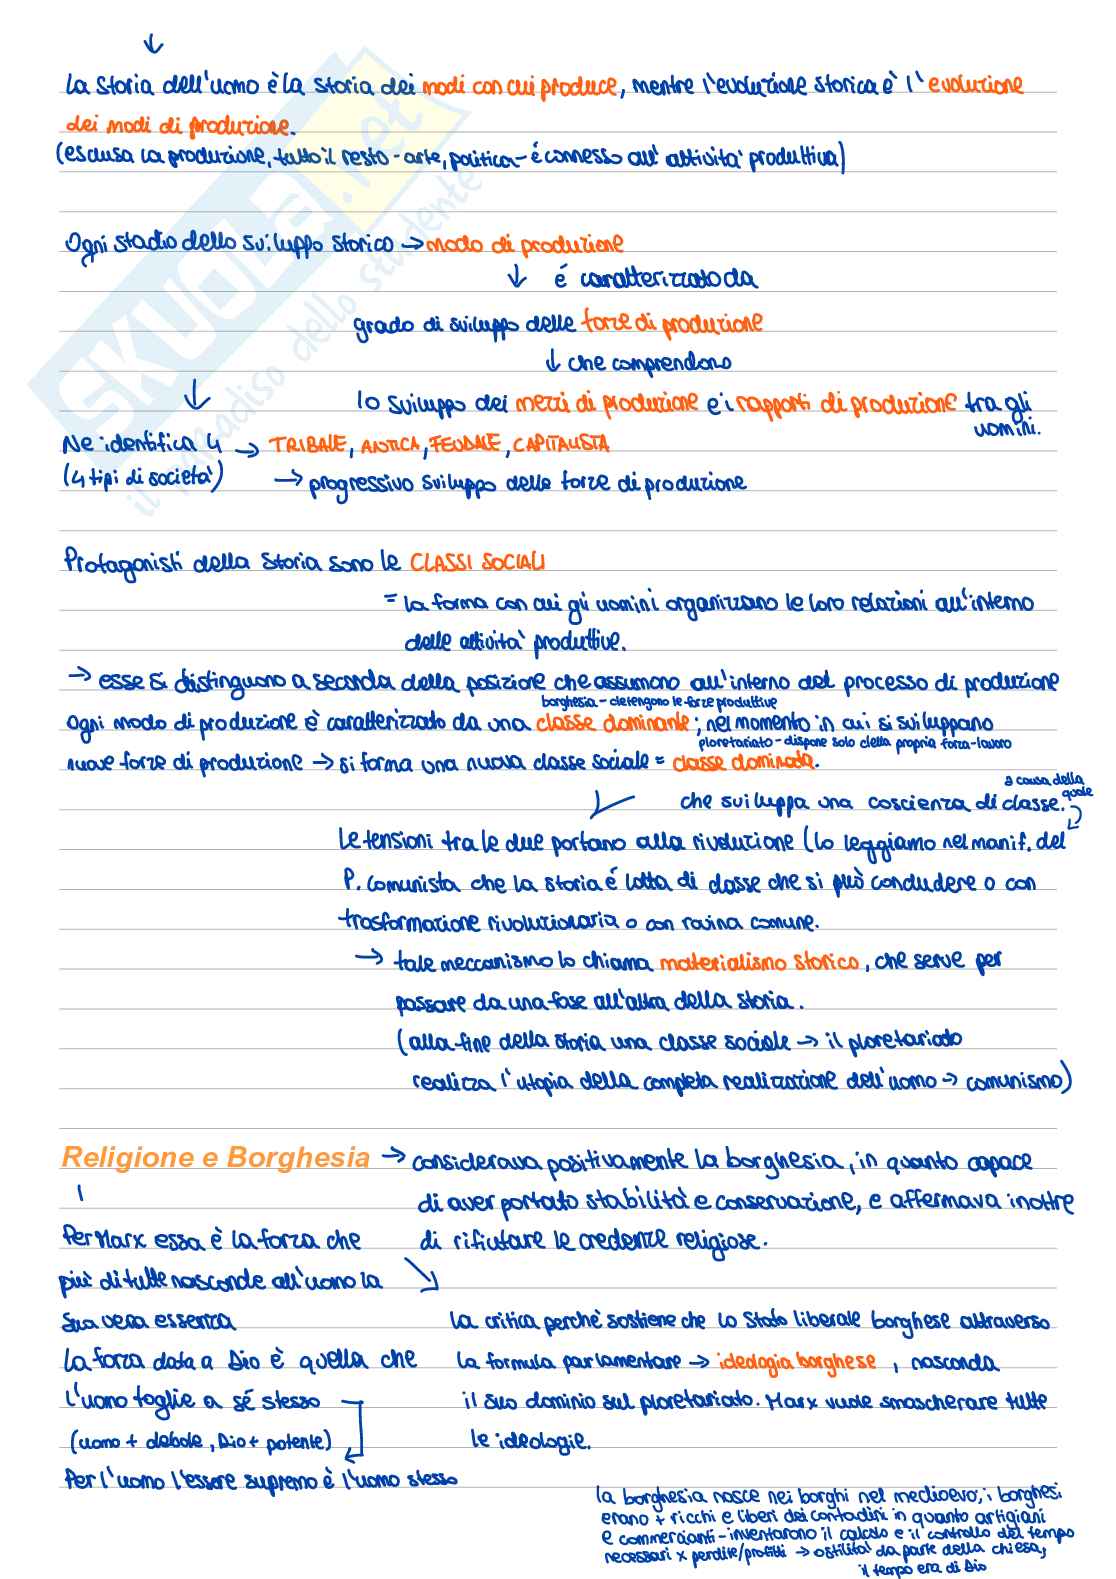 ↓
La storia dell'uomo è la storia dei modi con cui produce, mentre l'evoluzione storica è l'evoluzione
dei modi di produzione.
(esclusa la produzione, tutto il resto - arte, politica - é connesso all'attività produttiva)
Ogni stadio dello sviluppo storico → modo di produzione
↓ é caratterizzato da
grado di sviluppo delle forze di produzione
↓ che comprendono
↓ lo sviluppo dei mezzi di produzione e i rapporti di produzione tra gli
uomini.
Ne identifica 4 → TRIBALE, ANTICA, FEUDALE, CAPITALISTA
(4 tipi di società) → progressivo sviluppo delle forze di produzione
Protagonisti della storia sono le CLASSI SOCIALI
= la forma con cui gli uomini organizzano le loro relazioni all'interno
delle attività produttive.
→ esse si distinguono a seconda della posizione che assumono all'interno del processo di produzione
borghesia - detengono le forze produttive
Ogni modo di produzione è caratterizzato da una classe dominante; nel momento in cui si sviluppano
ploretariato - dispone solo della propria forza-lavoro
nuove forze di produzione → si forma una nuova classe sociale = classe dominada.
a causa della
quale
che sviluppa una coscienza di classe.
Le tensioni tra le due portano alla rivoluzione (lo leggiamo nel manif. del
P. comunista che la storia é lotta di classe che si può concludere o con
trasformazione rivoluzionaria o con rovina comune.
→ tale meccanismo lo chiama materialismo storico, che serve per
passare da una fase all'altra della storia.
(alla fine della storia una classe sociale → il ploretariato
realizza l'utopia della completa realizzazione dell'uomo → comunismo)
Religione e Borghesia → considerava positivamente la borghesia, in quanto capace
di aver portato stabilità e conservazione, e affermava inoltre
di rifiutare le credenze religiose.
Per Marx essa è la forza che
più di tutte nasconde all'uomo la
sua vera essenza
La forza data a Dio è quella che
l'uomo toglie a sé stesso
(uomo + debole, Dio + potente)
Per l'uomo l'essere supremo è l'uomo stesso
la critica perchè sostiene che lo Stato liberale borghese attraverso
la formula parlamentare → ideologia borghese, nasconda
il suo dominio sul ploretariato. Marx vuole smascherare tutte
le ideologie.
la borghesia nasce nei borghi nel medioevo; i borghesi
erano + ricchi e liberi dei contadini in quanto artigiani
e commercianti - inventarono il calcolo e il controllo del tempo
necessari x perdite/profitti → ostilità da parte della chiesa,
il tempo era di Dio
SKUOLA.net
il paradiso dello studente